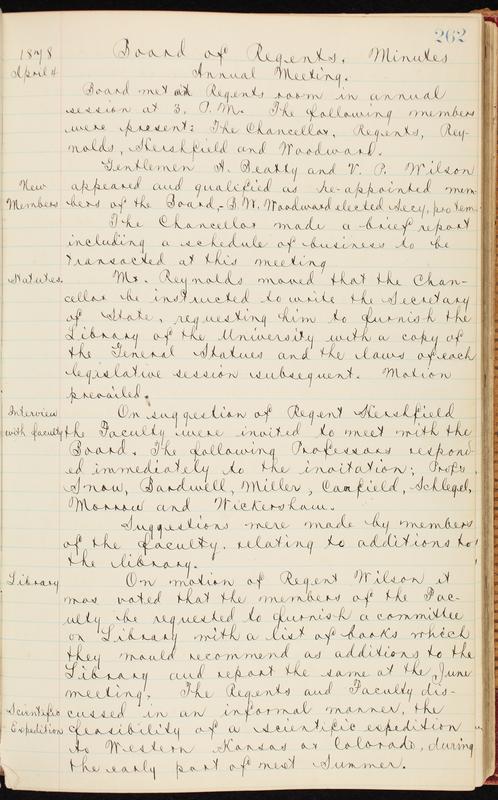 262
1878 Board of Regents. Minutes
April 4 Annual Meeting.
Board met at Regents room in annual
session at 3. P.M. The following members
were present: The Chancellor, Regents, Rey-
nolds, Hershfield and Woodward.
Gentlemen A. Beatty and V. P. Wilson
New appeared and qualified as re-appointed mem-
Members bers of the Board,- B.W. Woodward elected Secy, pro tem.
The Chancellor made a brief report
including a schedule of business to be
transacted at this meeting
Statutes. Mr. Reynolds moved that the Chan-
cellor be instructed to write the Secretary
of State, requesting him to furnish the
Library of the University with a copy of
the General Statues and the laws of each
legislative session subsequent. Motion
prevailed.
Interview On suggestion of Regent Hershfield
with faculty the Faculty were invited to meet with the
Board. The following Professors respond-
ed immediately to the invitation; Profs.
Snow, Bardwell, Miller, Canfield, Schlegel,
Morrow and Wickersham.
Suggestions were made by members
of the faculty. relating to additions to
the library.
Library On motion of Regent Wilson it
was voted that the members of the Fac-
ulty be requested to furnish a committee
on Library with a list of books which
they would recommend as additions to the
Library and report the same at the June
meeting. The Regents and Faculty dis-
Scientific cussed in an informal manner, the
Expedition feasibility of a scientific expedition
to Western Kansas or Colorado, during
the early part of next Summer.